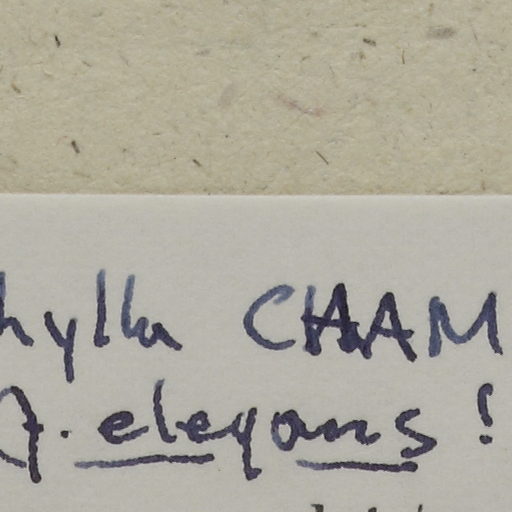 hylla CHAM
A. elegans!